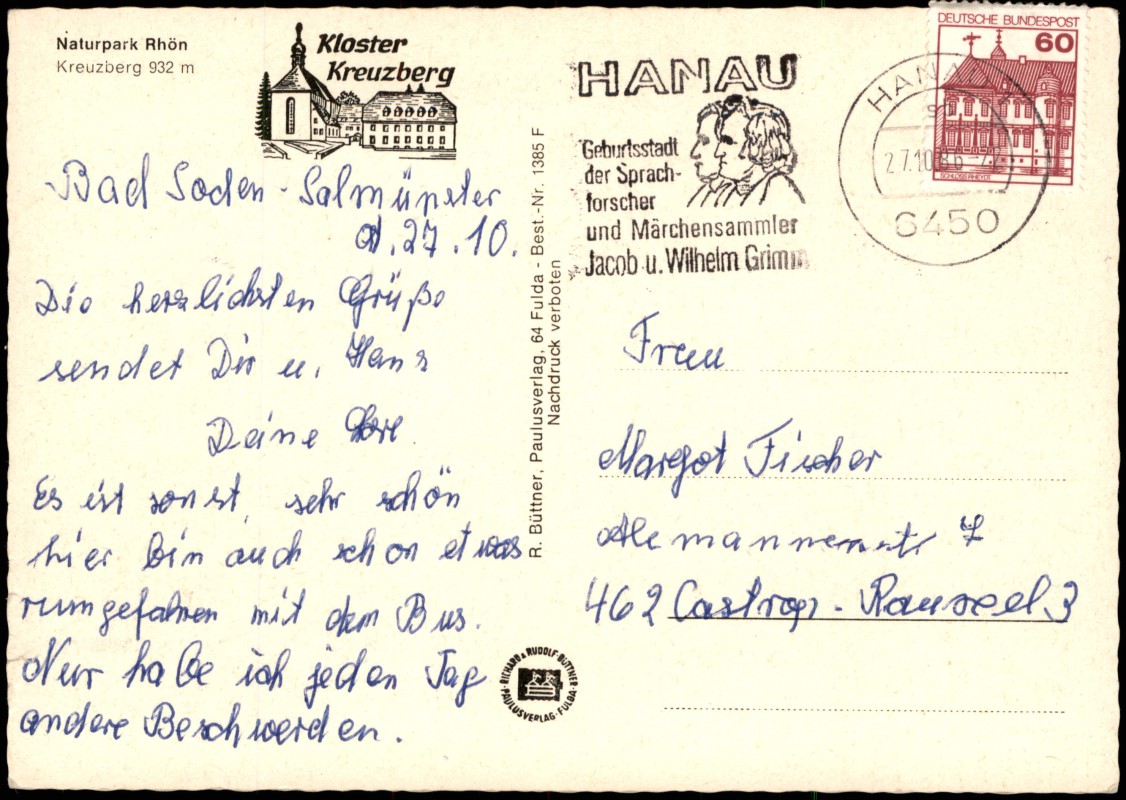 Naturpark Rhön
Kreuzberg 932 m
Kloster
Kreuzberg
Bad Soden-Salmünster
d. 27.10.
Die herzlichsten Grüße
sendet Dir u. Hans
Deine Lore
Es ist sonst sehr schön
hier bin auch schon etwas
rumgefahren mit dem Bus.
Nur habe ich jeden Tag
andere Beschwerden.
R. Büttner, Paulusverlag, 64 Fulda - Best.-Nr. 1385 F
Nachdruck verboten
RICHARD & RUDOLF BÜTTNER
PAULUSVERLAG · FULDA
HANAU
Geburtsstadt
der Sprach-
forscher
und Märchensammler
Jacob u. Wilhelm Grimm
HANAU
27.10.86
6450
DEUTSCHE BUNDESPOST
60
SCHLOSS RHEYDT
Frau
Margot Fischer
Alemannenstr 7
462 Castrop-Rauxel 3